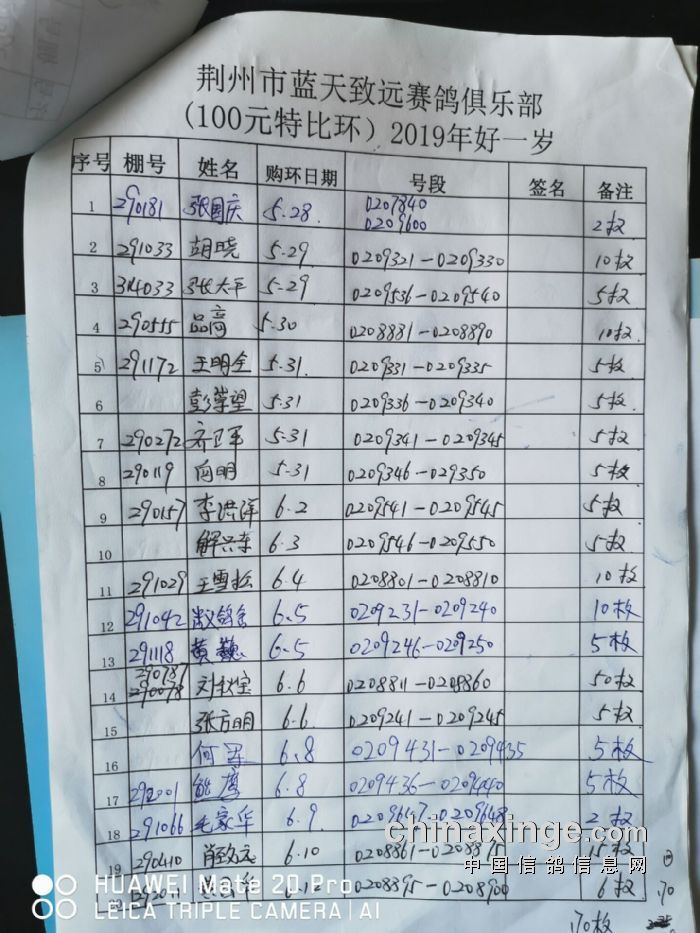 荆州市蓝天致远赛鸽俱乐部
(100元特比环) 2019年好一岁
序号 棚号 姓名 购环日期 号段 签名 备注
1 290181 张国庆 5.28. 0207840 0209600 2枚
2 291033 胡晓 5.29 0209321-0209330 10枚
3 314033 张大平 5.29 0209536-0209540 5枚
4 290555 品高 5.30 0208881-0208890 10枚
5 291172 王明全 5.31. 0209331-0209335 5枚
6 彭萍望 5.31 0209336-0209340 5枚
7 290272 5.31 0209341-0209345 5枚
8 290119 向明 5.31 0209346-029350 5枚
9 290157 李洪洋 6.2 0209541-0209545 5枚
10 解兴东 6.3 0209546-0209550 5枚
11 291029 王雪松 6.4 0208801-0208810 10枚
12 291042 6.5 0209231-0209240 10枚
13 291118 黄巍 6.5 0209246-0209250 5枚
14 290787 290078 刘秋宝 6.6 0208811-0208860 50枚
15 张方明 6.6. 0209241-0209245 5枚
16 何军 6.8 0209431-0209435 5枚
17 292001 熊鹰 6.8 0209436-0209440 5枚
18 291066 毛家华 6.9 0209647-0209648 2枚
19 290410 肖致远 6.10 0208861-0208875 15枚
20 6.12 0208895-0208900 6枚
170枚
chinaxinge.com
中国信鸽信息网
HUAWEI Mate 20 Pro
LEICA TRIPLE CAMERA | AI